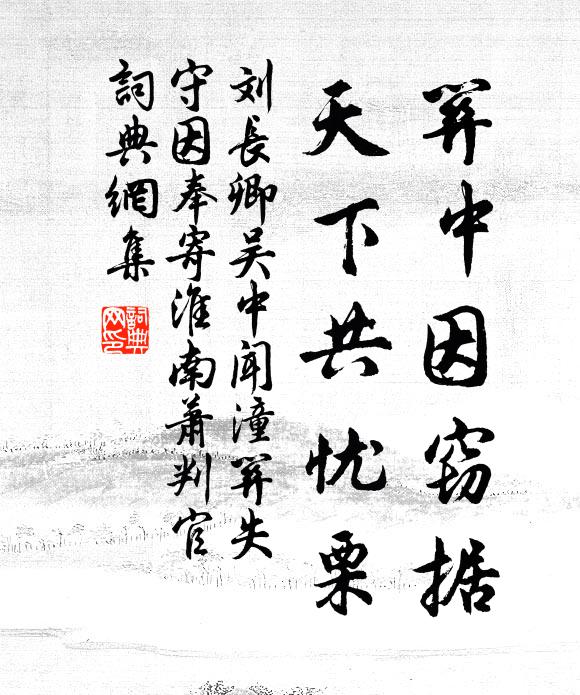 關中因窃据
天下共忧栗
刘長卿吴中闻潼關失
守因奉寄淮南萧判官
詞典網集
詞典网印